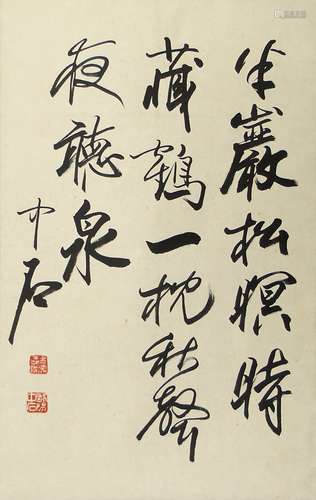 半巖松暝時
藏鶴一枕秋聲
夜聽泉
中石